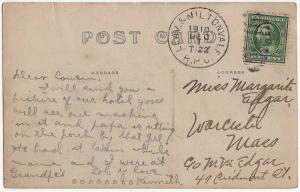 POST CARD
LEAV. & MILTONVALE
1910
7 22
R.P.O.
MESSAGE
ADDRESS
Dear Cousin.
I will send you a
picture of our hotel you
will see our washing
in it and papa is sitting
on the porch by that girl
He had it taken while
mama and I were at
Grandpa's Lots of Love
ooooooooo Kenneth
Miss Margarite
Edgar,
Mass
C/o M. K. Edgar
49 St.